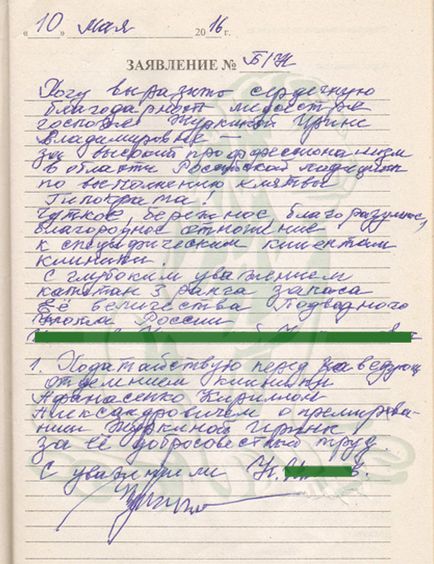 « 10 » мая 2016 г.
ЗАЯВЛЕНИЕ № Б/Н
Хочу выразить сердечную
благодарность медсестре
госпоже Ирине
Владимировне —
за высокий профессионализм
в области Российской медицины
по выполнению клятвы
Гипократа!
Чуткое, бережное, благоразумное,
благородное отношение
к специфическим клиентам
клиники!
С глубоким уважением
капитан 3 ранга запаса
Её величества Подводного
Флота России
1. Ходатайствую перед заведующ
отделением клиники
Афанасенко Кирилом
Александровичем о премирова-
нии Ирине
за её добросовестный труд.
С уважением